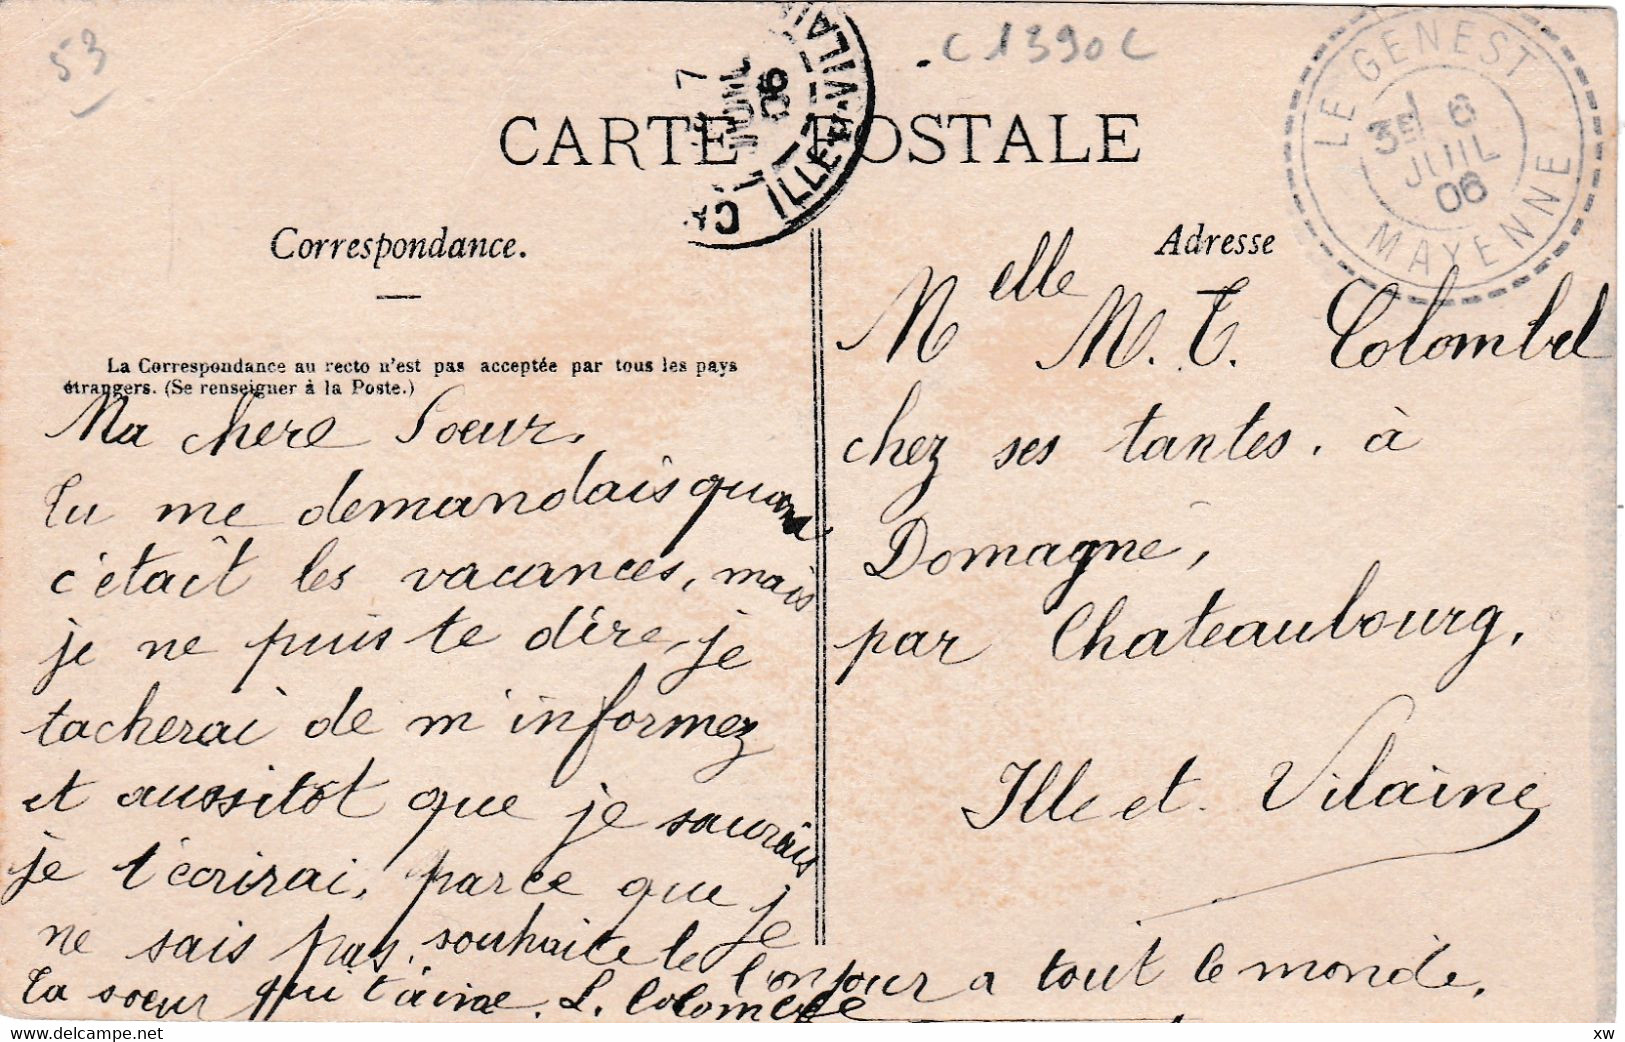 53
C 1390 C
LE GENEST
3E 6
JUIL
06
MAYENNE
7
06
ILLE-&-VILAI
CARTE POSTALE
Correspondance.
La Correspondance au recto n'est pas acceptée par tous les pays
étrangers. (Se renseigner à la Poste.)
Ma chere Soeur.
Tu me demandais quand
c'etait les vacances, mais
je ne puis te dire, je
tacherai de m'informez
et aussitôt que je saurais
je t'écrirai, parce que je
ne sais pas. souhaite le bonjour a tout le monde.
Ta soeur qui t'aime. L. Colombel
Adresse
Melle M. T. Colombel
chez ses tantes. à
Domagné,
par Chateaubourg,
Ille et. Vilaine
delcampe.net
xw